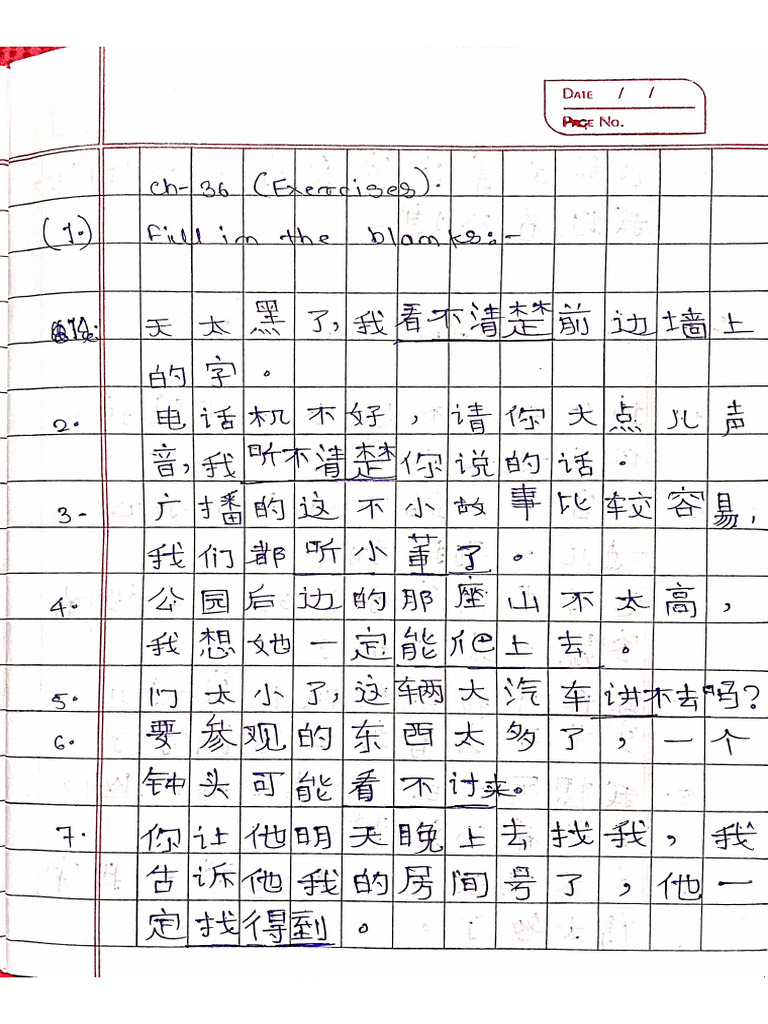 DATE / /
PAGE No.
Ch-36 (Exercises).
(1.) Fill in the blanks:-
天太黑了,我看不清楚前边墙上
的字。
2. 电话机不好,请你大点儿声
音,我听不清楚你说的话.
3- 广播的这不小故事比较容易,
我们都听小董了。
4. 公园后边的那座山不太高,
我想她一定能爬上去。
5. 门太小了,这辆大汽车讲不去吗?
6. 要参观的东西太多了,一个
钟头可能看不过来。
7. 你让他明天晚上去找我,我
告诉他我的房间号了,他一
定找得到。